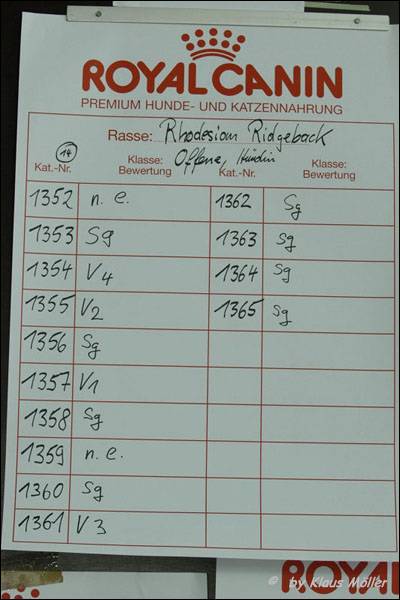 ROYAL CANIN
PREMIUM HUNDE- UND KATZENNAHRUNG
Rasse: Rhodesian Ridgeback
14 Klasse: Offene, Hündin Klasse:
Kat.-Nr. Bewertung Kat.-Nr. Bewertung
1352 n. e. 1362 Sg
1353 Sg 1363 Sg
1354 V4 1364 Sg
1355 V2 1365 Sg
1356 Sg
1357 V1
1358 Sg
1359 n. e.
1360 Sg
1361 V3
ROYAL
© by Klaus Möller